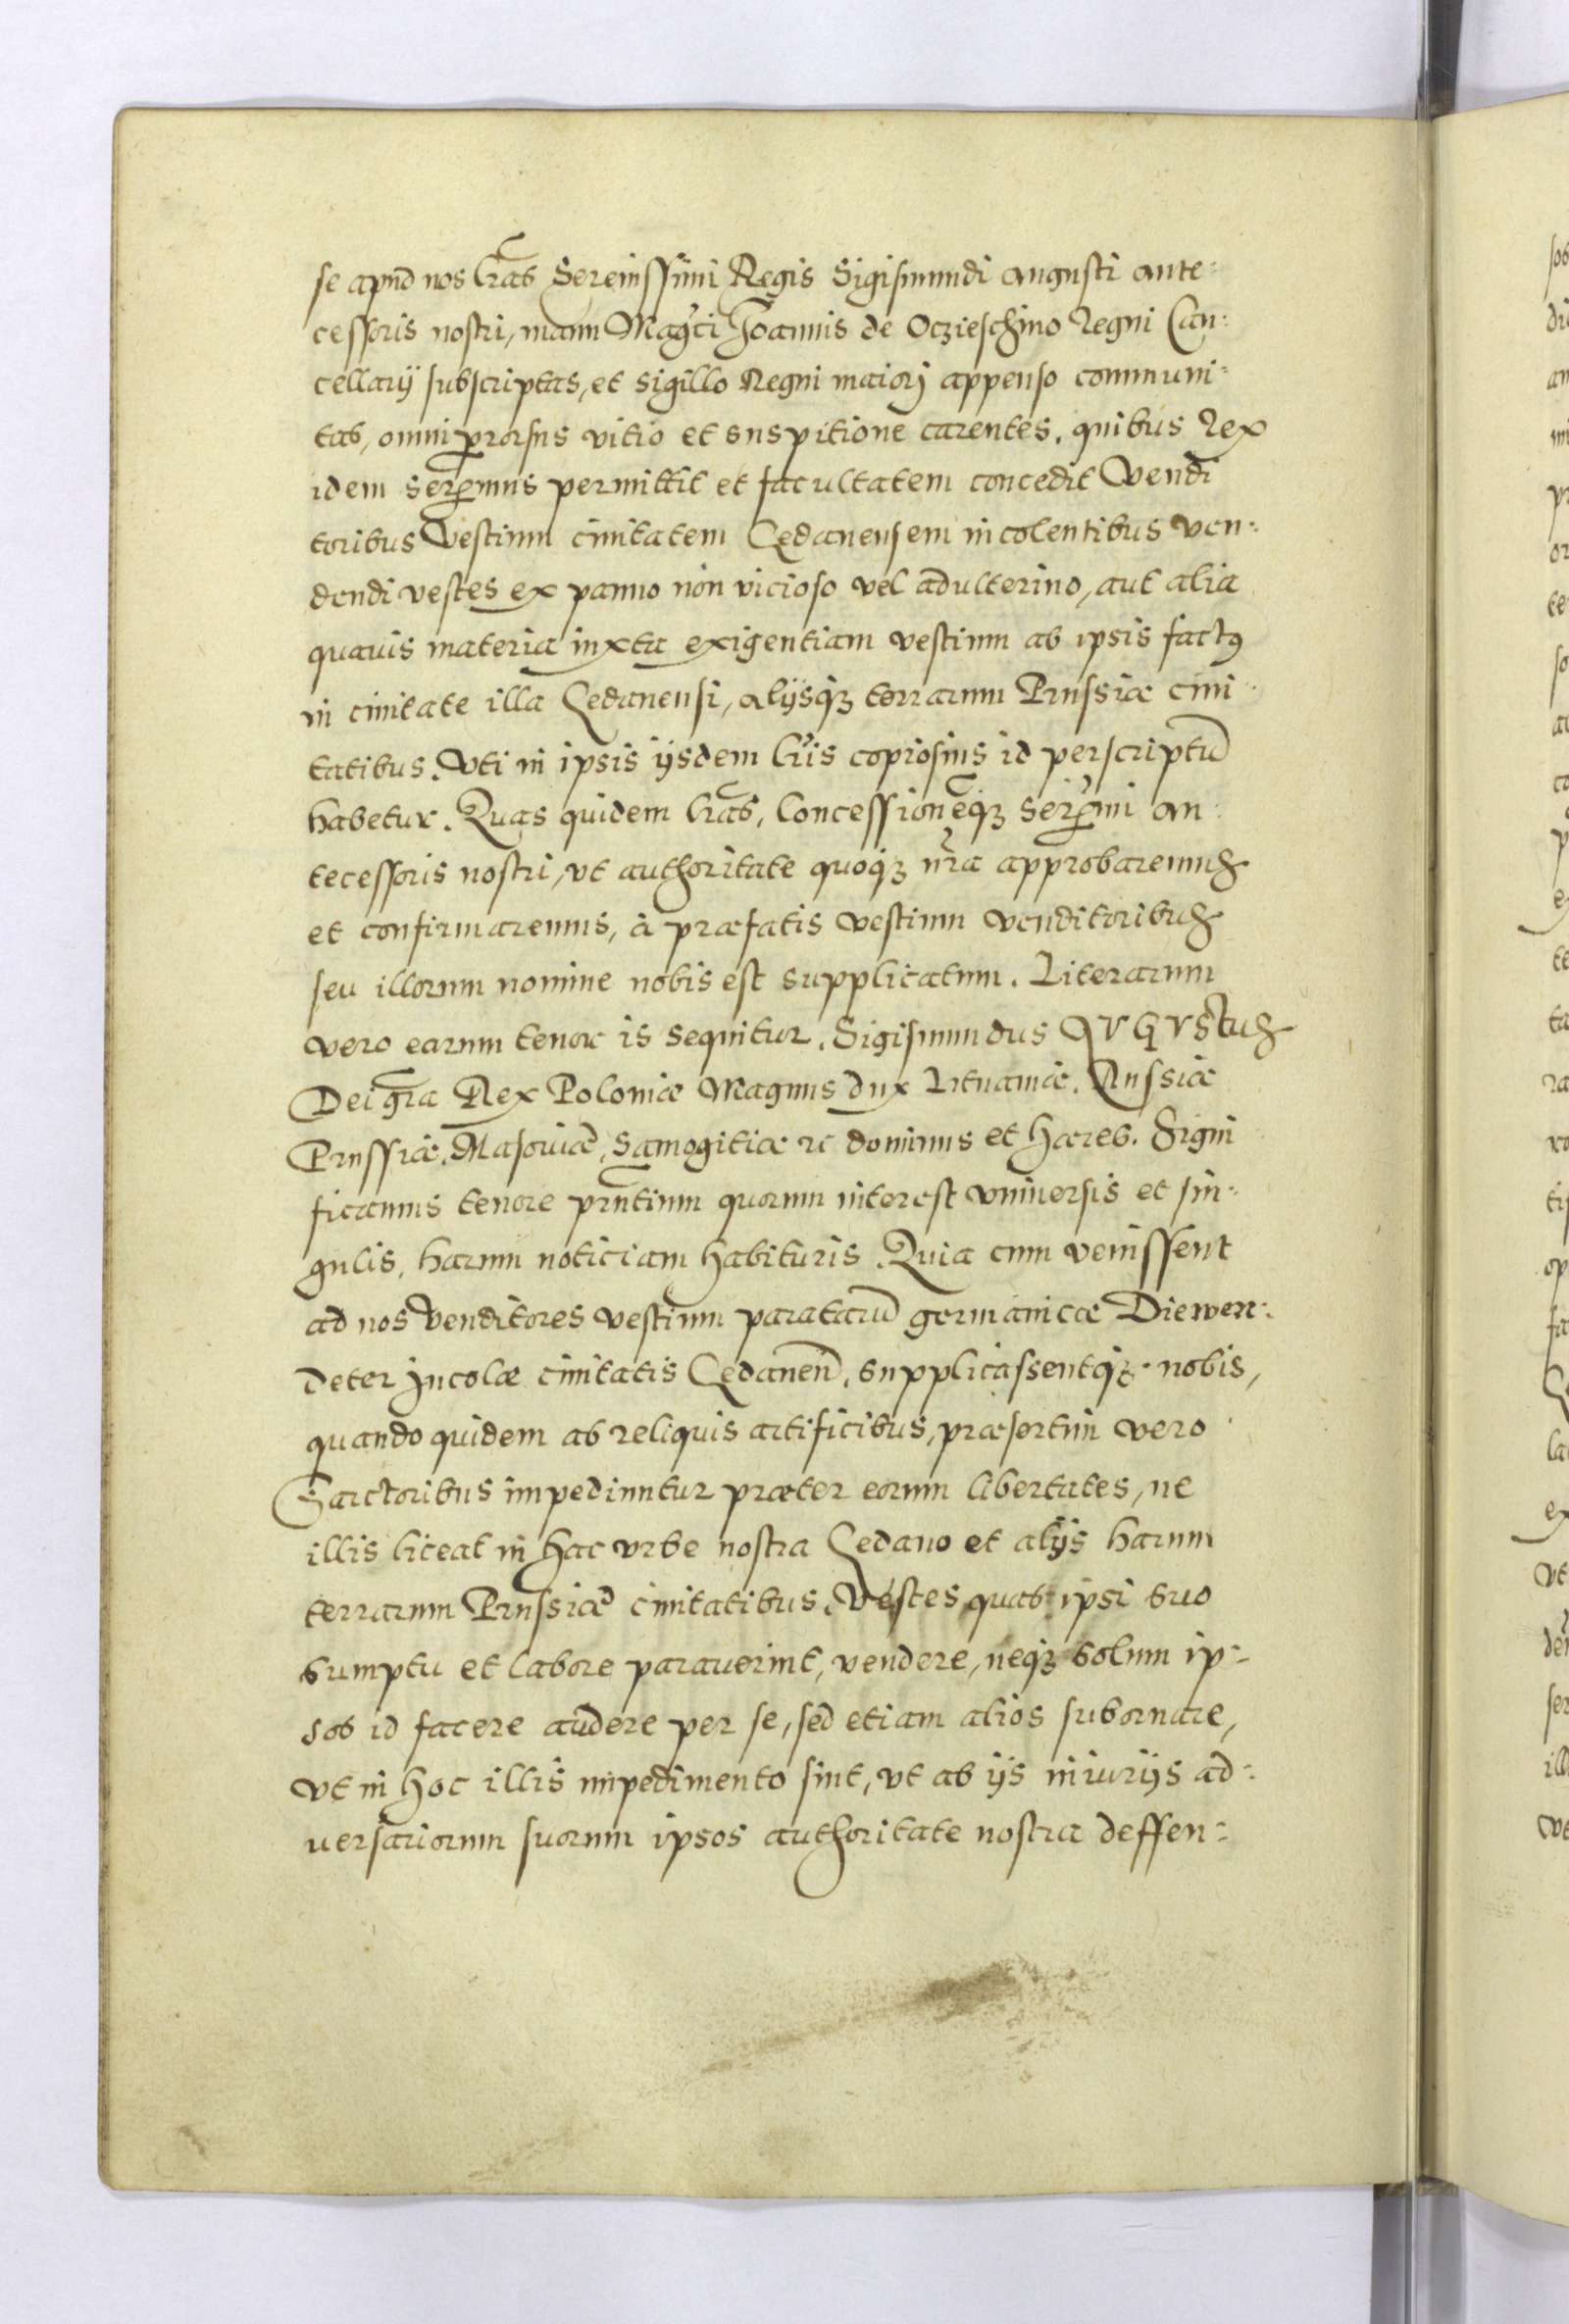 se apud nos lr̃as Sereniſſimi Regis Sigiſmundi Augusti ante⸗
ceſſoris nostri, manu Mag̃ci Joannis de Oczieſchino Regni Can⸗
cellarij ſubscriptas, et sigillo Regni maiorj appenso communi⸗
tas, omni prorſus vitio et suspitione carentes, quibus Rex
idem Serẽmus permittit et facultatem concedit Vendi
toribus Vestium ciuitatem Gedanenſem incolentibus ven⸗
dendi vestes ex panno non vicioso vel adulterino, aut alia
quauis materia iuxta exigentiam vestium ab ipsis factꝰ
in ciuitate illa Gedanenſi, alijsqꝫ terrarum Pruſsiæ ciui
tatibus. Vti in ipsis ijsdem lr̃is copiosius id perscriptũ
habetur. Quas quidem lr̃as, Conceſſionẽqꝫ Serẽmi An⸗
teceſſoris nostri, vt authoritate quoqꝫ nr̃a approbaremus
et confirmaremus, à præfatis vestium venditoribus
ſeu illorum nomine nobis est supplicatum. Literarum
vero earum tenor is sequitur. Sigiſmundus AVGVStus
Dei gr̃a Rex Poloniæ Magnus dux Lituaniæ, Ruſsiæ
Pruſſiæ, Maſouiæ, Samogitiæ ꝛc dominus et hæres. Signi
ficamus tenore pñtium quorum interest vniuersis et ſin⸗
gulis, harum noticiam habituris. Quia cum veniſſent
ad nos Venditores vestium paratarũ germanicæ Diewen⸗
deter Jncolæ ciuitatis Gedaneñ, supplicaſsentqꝫ nobis,
quando quidem ab reliquis artificibus, præsertim vero
Sarctoribus impediuntur præter eorum libertates, ne
illis liceat in hac vrbe nostra Gedano et alijs harum
terrarum Pruſsiæ ciuitatibus. Vestes quas ipsi suo
sumptu et labore parauerint, vendere, neqꝫ solum ip⸗
sos id facere audere per ſe, ſed etiam alios ſubornare,
vt in hoc illis impedimento ſint, vt ab ijs iniurijs ad⸗
uersariorum ſuorum ipsos authoritate nostra deffen⸗